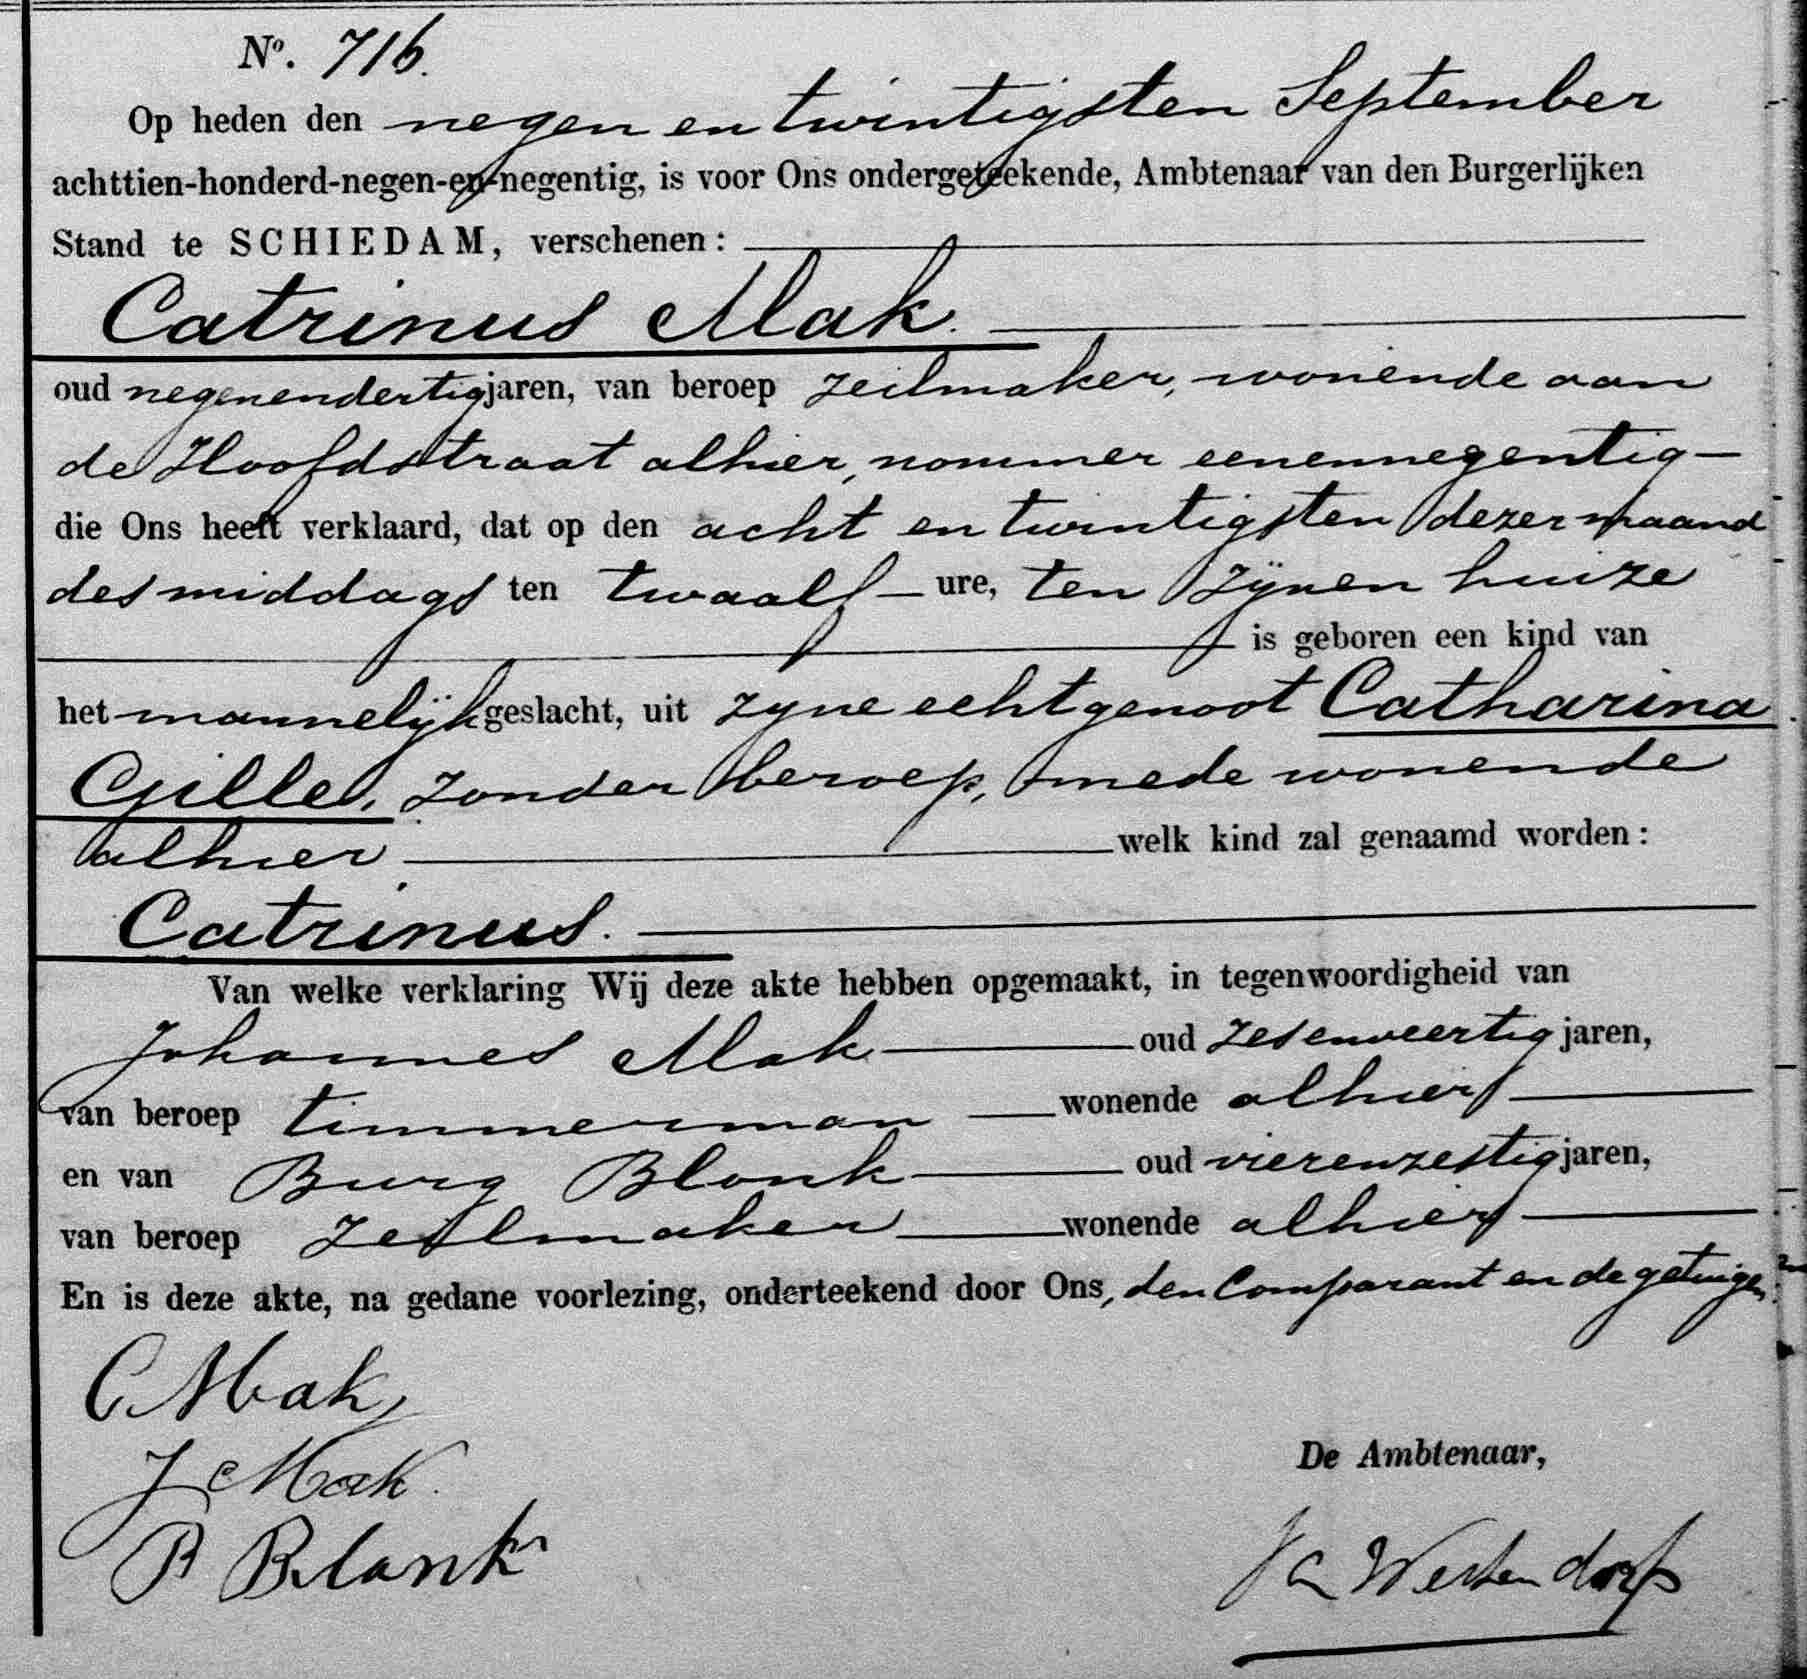 Nº. 716.
Op heden den negen en twintigsten September
achttien-honderd-negen-en-negentig, is voor Ons ondergeteekende, Ambtenaar van den Burgerlijken
Stand te SCHIEDAM, verschenen:
Catrinus Mak.
oud negenendertig jaren, van beroep zeilmaker, wonende aan
de Hoofdstraat alhier, nommer eenennegentig
die Ons heeft verklaard, dat op den acht en twintigsten dezer maand
des middags ten twaalf ure, ten zijnen huize
is geboren een kind van
het mannelijk geslacht, uit zyne echtgenoot Catharina
Gille, zonder beroep, mede wonende
alhier welk kind zal genaamd worden:
Catrinus.
Van welke verklaring Wij deze akte hebben opgemaakt, in tegenwoordigheid van
Johannes Mak oud zesenveertig jaren,
van beroep timmerman wonende alhier
en van Burg Blonk oud vierenzestig jaren,
van beroep Zeilmaker wonende alhier
En is deze akte, na gedane voorlezing, onderteekend door Ons, den Comparant en de getuigen
C Mak
J Mak.
B Blonk
De Ambtenaar,
Westendorp